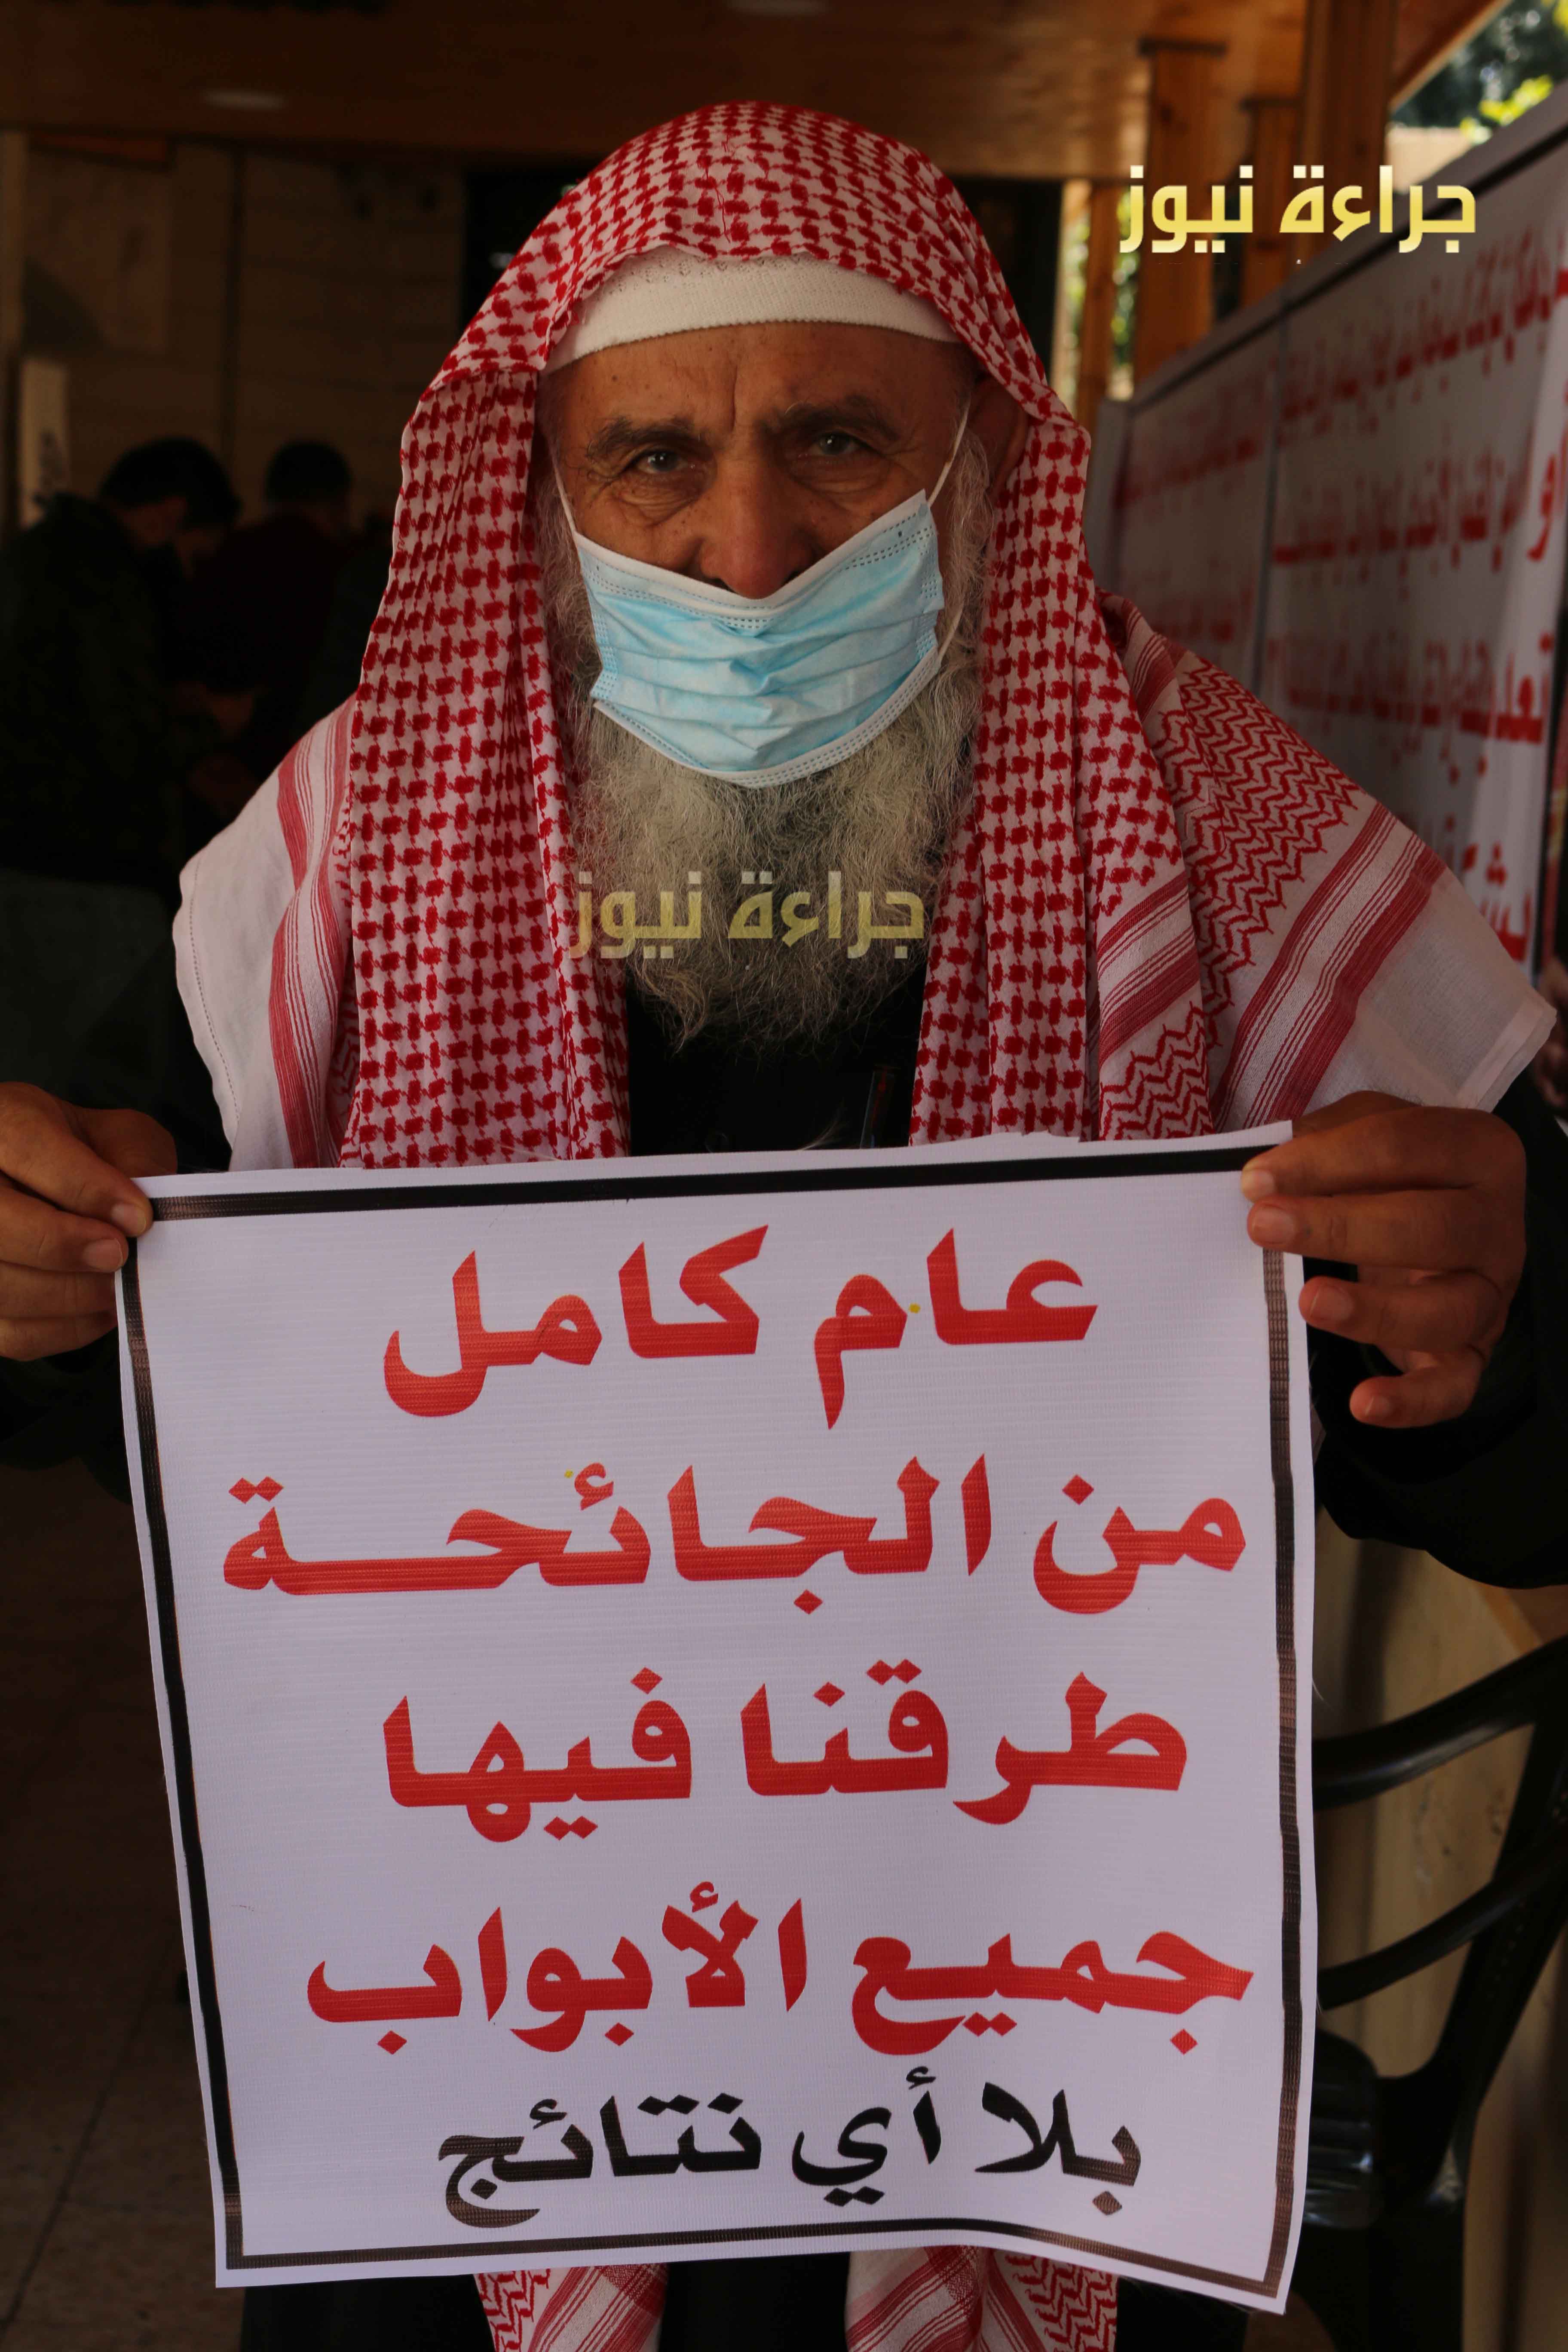 جراءة نيوز
جراءة نيوز
عام كامل
من الجائحة
طرقنا فيها
جميع الأبواب
بلا أي نتائج